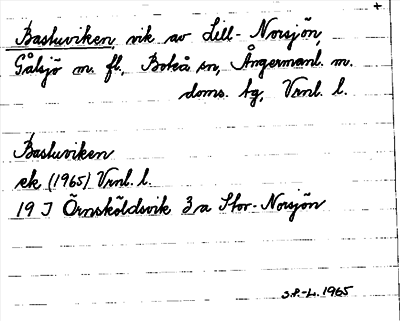 Bastuviken, vik av Lill-Norsjön,
Gålsjö m. fl., Boteå sn, Ångermanl. m.
doms. tg, Vrnl. l.
Bastuviken
ek (1965) Vrnl. l.
19 J Örnsköldsvik 3a Stor-Norsjön
S.P.-L. 1965